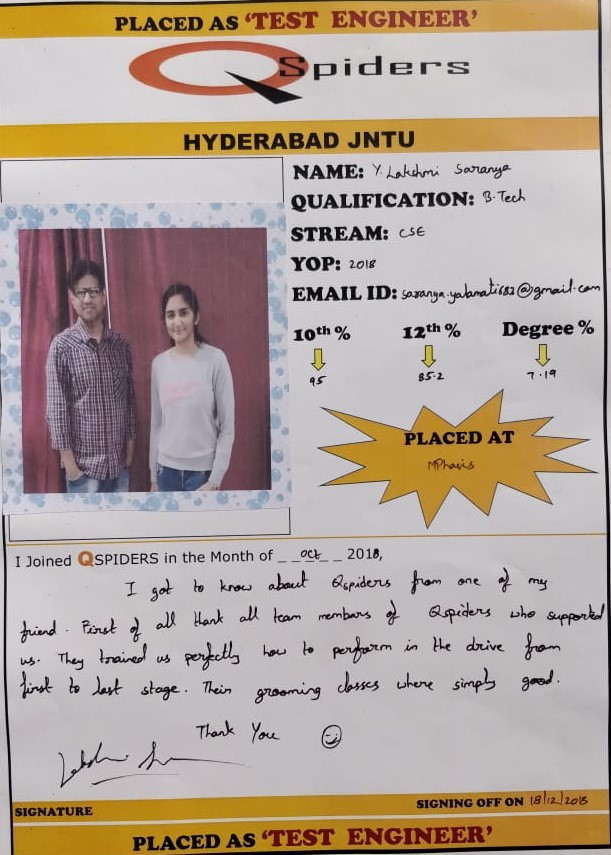 PLACED AS ‘TEST ENGINEER’
QSpiders
HYDERABAD JNTU
NAME: Y. Lakshmi Saranya
QUALIFICATION: B.Tech
STREAM: CSE
YOP: 2018
EMAIL ID: saranya.yalamati682@gmail.com
10th % 12th % Degree %
95 85.2 7.19
PLACED AT
MPhasis
I Joined QSPIDERS in the Month of _ _ oct _ _ 2018,
I got to know about Qspiders from one of my
friend. First of all thank all team members of Qspiders who supported
us. They trained us perfectly how to perform in the drive from
first to last stage. Their grooming classes where simply good.
Thank You
SIGNATURE
SIGNING OFF ON 18/12/2018
PLACED AS ‘TEST ENGINEER’